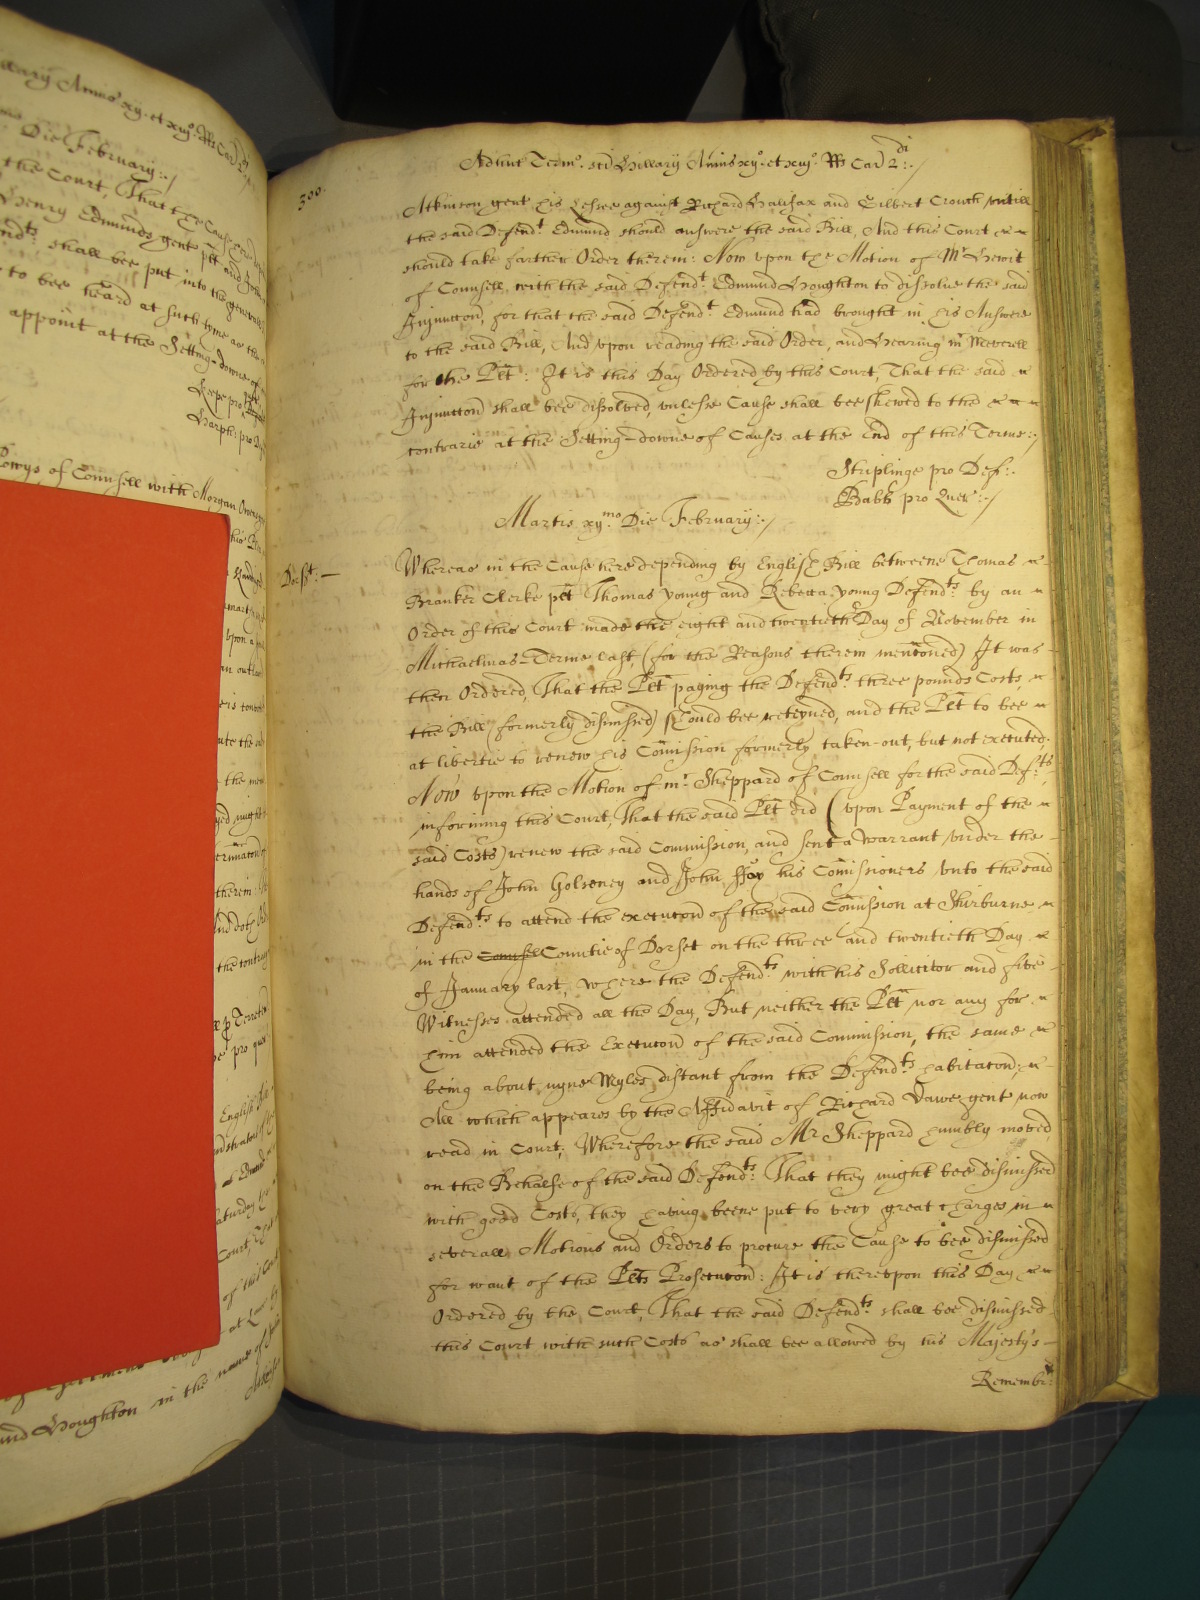 llary Annis xvo. et xvjo. Rs Car 2di
Die February:/
the Court, That the Cause
Henry Edmunds gent plt and
nd.ts shall bee put into the generall
to bee heard at such tyme as the
appoint at the Setting-downe of
Keepe pro
Harph: pro
Powys of Counsell with Morgan
English
Saturday
Court
of this Court
at Law
in the name of
and Houghton
300.
Adhuc Termo. sci Hillarij Annis xvo. et xvjo. Rs Car 2.di:/
Atkinson gent his Lessee against Richard Halifax and Gilbert Crouch untill
the said Defend.t Edmund should answere the said Bill, And this Court
should take farther Order therein: Now upon the Motion of Mr. Hewit
of Counsell with the said Defend.t Edmund Houghton to dissolve the said
Injuncton, for that the said Defend.t Edmund had brought in his Answere
to the said Bill, And upon reading the said Order, and Hearing mr. Meverell
for the Plt: It is this Day Ordered by this Court, That the said
Injuncton shall bee dissolved, unlesse Cause shall bee shewed to the
contrarie at the Setting-downe of Causes at the End of this Terme:/
Striplinge pro Def:.
Babb pro Quer:./
Martis xvj.mo Die February:./
Dorst: —
Whereas in the Cause here depending by English Bill betweene Thomas
Branker Clerke plt Thomas Young and Rebecca Young Defend.ts by an
Order of this Court made the eight and twentieth Day of November in
Michaelmas-Terme last, (for the Reasons therein mencioned) It was
then Ordered, That the Plt paying the Defend.ts three pounds Costs,
the Bill (formerly dismissed) should bee reteyned, and the Plt to bee
at libertie to renew his Comission formerly taken-out, but not executed;
Now upon the Motion of mr. Sheppard of Counsell for the said Def.ts
informing this Court, That the said Plt did (upon Payment of the
said Costs) renew the said Commission, and sent a Warrant under the
hands of John Golseney and John Ffoy his Comissioners unto the said
Defend.ts to attend the executon of the said Comission at Shirburne
in the Counsel Countie of Dorset on the three and twentieth Day
of January last, where the Defend.ts with his Sollicitor and five
Witnesses attended all the Day, But neither the Plt nor any for
him attended the Executon of the said Commission, the same
being about nyne Myles distant from the Defend.ts habitacon;
All which appeares by the Affidavit of Richard Dawe gent now
read in Court; Wherefore the said Mr Sheppard humbly moved
on the Behalfe of the said Defend.ts That they might bee dismissed
with good Costs, they having beene put to very great charges in
severall Motions and Orders to procure the Cause to bee dismissed
for want of the Plts Prosecuton: It is thereupon this Day
Ordered by the Court, That the said Defend.ts shall bee dismissed
this Court with such Costs as shall bee allowed by his Majesty's
Remembr: